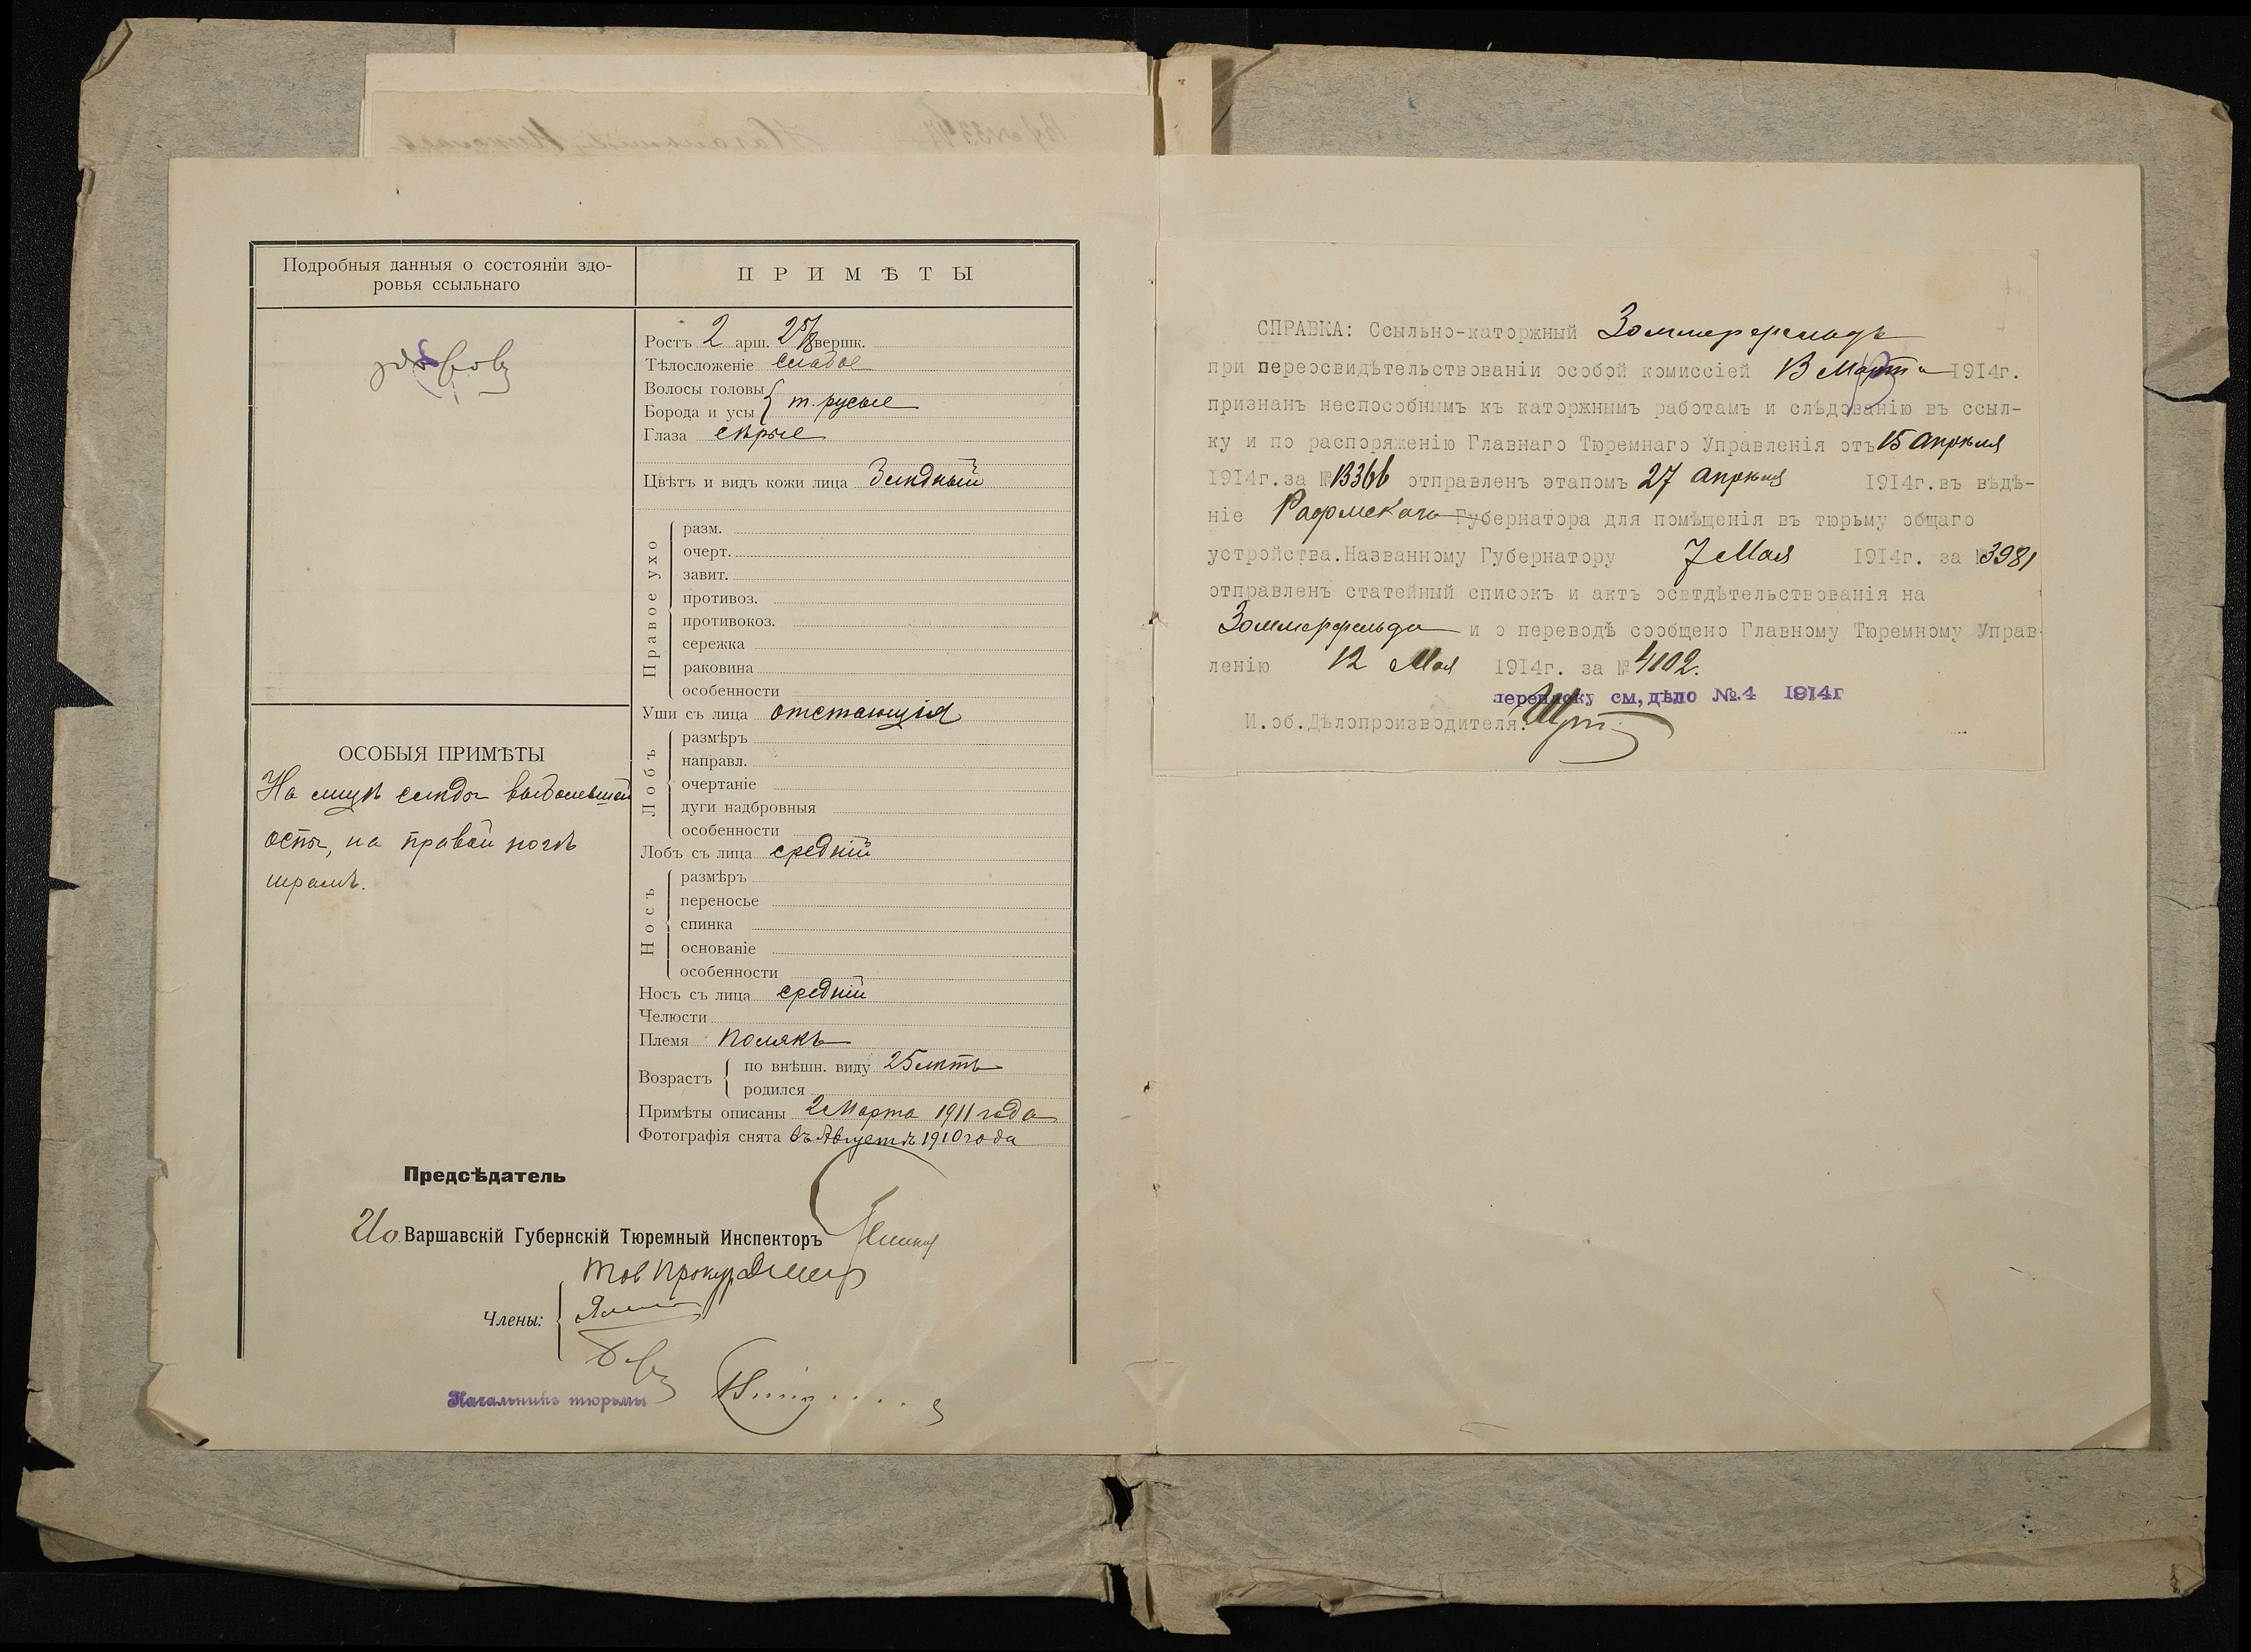 Подробныя данныя о состоянiи здо-
ровья ссыльнаго
здоровъ
ОСОБЫЯ ПРИМѢТЫ
На лицѣ слѣды выболевшей
оспы, на правой ногѣ
шрамъ.
ПРИМѢТЫ
Ростъ 2 арш. 2 5/8 вершк.
Тѣлосложенiе слабое
Волосы головы
Борода и усы т. русые
Глаза сѣрые
Цвѣтъ и видъ кожи лица блѣдный
Правое ухо
разм.
очерт.
завит.
противоз.
противокоз.
сережка
раковина
особенности
Уши съ лица отстающiя
Лобъ
размѣръ
направл.
очертанiе
дуги надбровныя
особенности
Лобъ съ лица среднiй
Носъ
размѣръ
переносье
спинка
основанiе
особенности
Носъ съ лица среднiй
Челюсти
Племя полякъ
Возрастъ
по внѣшн. виду 25 лѣтъ
родился
Примѣты описаны 2 Марта 1911 года
Фотографiя снята въ Августѣ 1910 года
Предсѣдатель
Ио. Варшавскiй Губернскiй Тюремный Инспекторъ
Тов Прокур
Члены:
Начальникъ тюрьмы
СПРАВКА: Ссыльно-каторжный Зоммерфельдъ
при переосвидѣтельствованiи особой комиссiей 13 Марта 1914г.
признанъ неспособнымъ къ каторжнымъ работамъ и слѣдованiю въ ссыл-
ку и по распоряженiю Главнаго Тюремнаго Управленiя отъ 15 апрѣля
1914г. за № 13366 отправленъ этапомъ 27 апрѣля 1914г. въ вѣдѣ-
нiе Радомскаго Губернатора для помѣщенiя въ тюрьму общаго
устройства. Названному Губернатору 7 Мая 1914г. за № 3981
отправленъ статейный списокъ и актъ освтдѣтельствованiя на
Зоммерфельда и о переводѣ сообщено Главному Тюремному Управ-
ленiю 12 Мая 1914г. за № 4102.
переписку см, дѣло №.4 1914г
И.об.Дѣлопроизводителя: